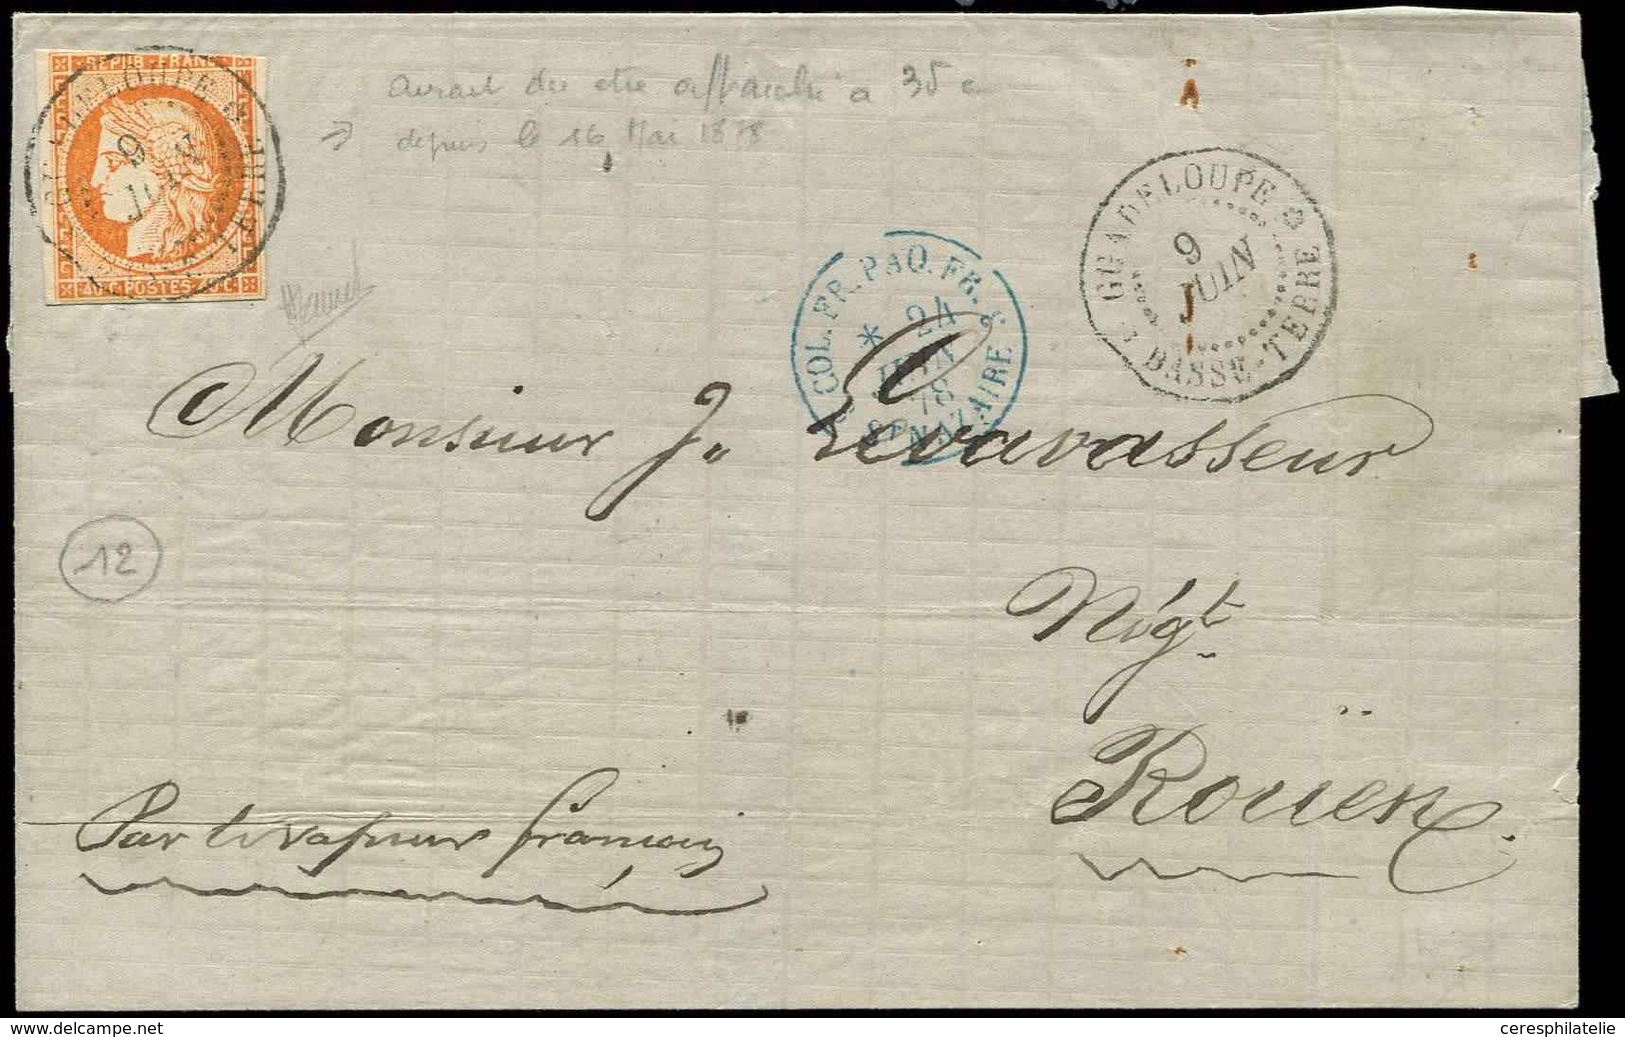 REPUB. FRANC.
40 c. POSTES 40 c.
GUADELOUPE
BASSE-TERRE
9
JUIN
aurait du etre affranchi a 35 c
→ depuis le 16 Mai 1878
GUADELOUPE
9
JUIN
BASSE-TERRE
COL. FR. PAQ. FR.
24
JUIN
78
ST NAZAIRE
Monsieur J. Levavasseur
12
Négt
Rouën.
Par le vapeur français
ceresphilatelie